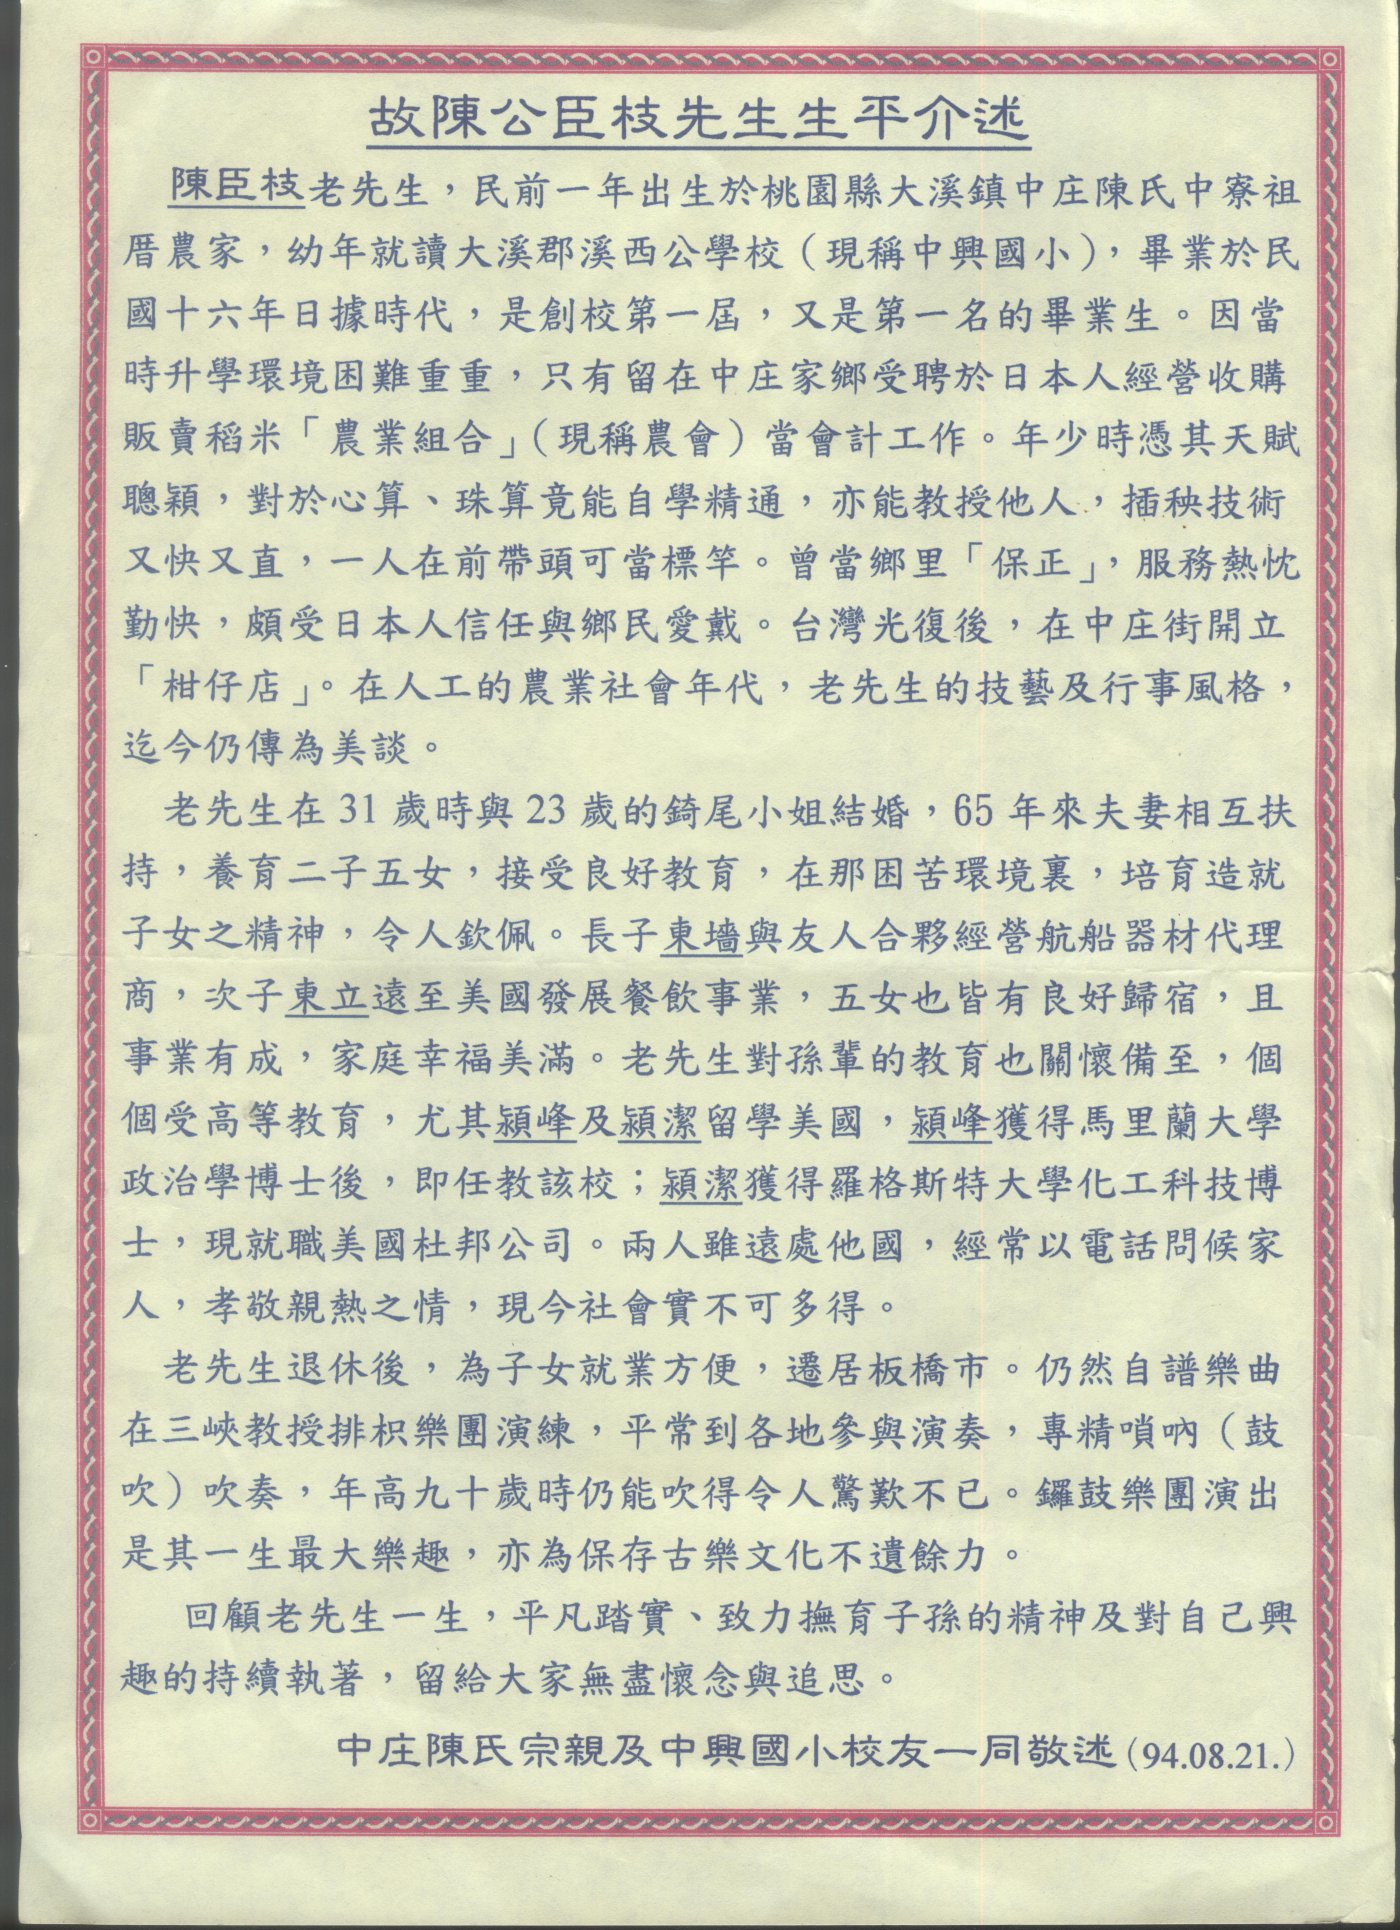 故陳公臣枝先生生平介述
陳臣枝老先生，民前一年出生於桃園縣大溪鎮中庄陳氏中寮祖
厝農家，幼年就讀大溪郡溪西公學校（現稱中興國小），畢業於民
國十六年日據時代，是創校第一屆，又是第一名的畢業生。因當
時升學環境困難重重，只有留在中庄家鄉受聘於日本人經營收購
販賣稻米「農業組合」（現稱農會）當會計工作。年少時憑其天賦
聰穎，對於心算、珠算竟能自學精通，亦能教授他人，插秧技術
又快又直，一人在前帶頭可當標竿。曾當鄉里「保正」，服務熱忱
勤快，頗受日本人信任與鄉民愛戴。台灣光復後，在中庄街開立
「柑仔店」。在人工的農業社會年代，老先生的技藝及行事風格，
迄今仍傳為美談。
老先生在 31 歲時與 23 歲的錡尾小姐結婚，65 年來夫妻相互扶
持，養育二子五女，接受良好教育，在那困苦環境裏，培育造就
子女之精神，令人欽佩。長子東墻與友人合夥經營航船器材代理
商，次子東立遠至美國發展餐飲事業，五女也皆有良好歸宿，且
事業有成，家庭幸福美滿。老先生對孫輩的教育也關懷備至，個
個受高等教育，尤其潁峰及潁潔留學美國，潁峰獲得馬里蘭大學
政治學博士後，即任教該校；潁潔獲得羅格斯特大學化工科技博
士，現就職美國杜邦公司。兩人雖遠處他國，經常以電話問候家
人，孝敬親熱之情，現今社會實不可多得。
老先生退休後，為子女就業方便，遷居板橋市。仍然自譜樂曲
在三峽教授排枳樂團演練，平常到各地參與演奏，專精嗩吶（鼓
吹）吹奏，年高九十歲時仍能吹得令人驚歎不已。鑼鼓樂團演出
是其一生最大樂趣，亦為保存古樂文化不遺餘力。
回顧老先生一生，平凡踏實、致力撫育子孫的精神及對自己興
趣的持續執著，留給大家無盡懷念與追思。
中庄陳氏宗親及中興國小校友一同敬述（94.08.21.）